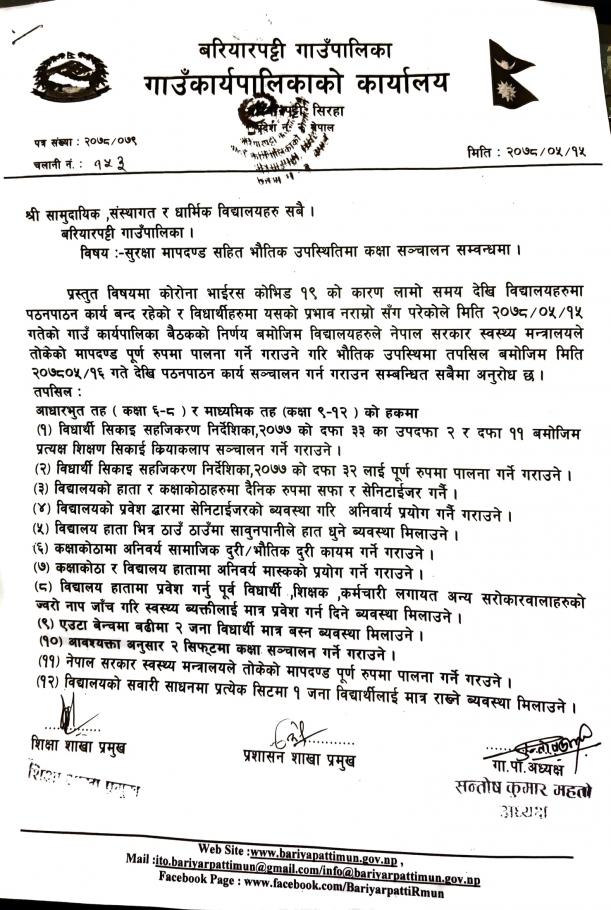 बरियारपट्टी गाउँपालिका
गाउँकार्यपालिकाको कार्यालय
सिरहा
नेपाल
पत्र संख्या : २०७८/०७९
चलानी नं. : १५३
मिति : २०७८/०५/१५
श्री सामुदायिक ,संस्थागत र धार्मिक विद्यालयहरु सबै ।
बरियारपट्टी गाउँपालिका ।
विषय :-सुरक्षा मापदण्ड सहित भौतिक उपस्थितिमा कक्षा सञ्चालन सम्वन्धमा ।
प्रस्तुत विषयमा कोरोना भाईरस कोभिड १९ को कारण लामो समय देखि विद्यालयहरुमा
पठनपाठन कार्य बन्द रहेको र विधार्थीहरुमा यसको प्रभाव नराम्रो सँग परेकोले मिति २०७८/०५/१५
गतेको गाउँ कार्यपालिका बैठकको निर्णय बमोजिम विद्यालयहरुले नेपाल सरकार स्वस्थ्य मन्त्रालयले
तोकेको मापदण्ड पूर्ण रुपमा पालना गर्ने गराउने गरि भौतिक उपस्थिमा तपसिल बमोजिम मिति
२०७८०५/१६ गते देखि पठनपाठन कार्य सञ्चालन गर्न गराउन सम्बन्धित सबैमा अनुरोध छ ।
तपसिल :
आधारभुत तह ( कक्षा ६-८ ) र माध्यमिक तह (कक्षा ९-१२ ) को हकमा
(१) विधार्थी सिकाइ सहजिकरण निर्देशिका,२०७७ को दफा ३३ का उपदफा २ र दफा ११ बमोजिम
प्रत्यक्ष शिक्षण सिकाई क्रियाकलाप सञ्चालन गर्ने गराउने ।
(२) विधार्थी सिकाइ सहजिकरण निर्देशिका,२०७७ को दफा ३२ लाई पूर्ण रुपमा पालना गर्ने गराउने ।
(३) विद्यालयको हाता र कक्षाकोठाहरुमा दैनिक रुपमा सफा र सेनिटाईजर गर्ने ।
(४) विद्यालयको प्रवेश द्धारमा सेनिटाईजरको ब्यवस्था गरि अनिवार्य प्रयोग गर्ने गराउने ।
(५) विद्यालय हाता भित्र ठाउँ ठाउँमा सावुनपानीले हात धुने ब्यवस्था मिलाउने ।
(६) कक्षाकोठामा अनिवर्य सामाजिक दुरी/भौतिक दुरी कायम गर्ने गराउने ।
(७) कक्षाकोठा र विद्यालय हातामा अनिवर्य मास्कको प्रयोग गर्ने गराउने ।
(८) विद्यालय हातामा प्रवेश गर्नु पूर्व विधार्थी ,शिक्षक ,कर्मचारी लगायत अन्य सरोकारवालाहरुको
ज्वरो नाप जाँच गरि स्वस्थ्य ब्यक्तीलाई मात्र प्रवेश गर्न दिने ब्यवस्था मिलाउने ।
(९) एउटा बेन्चमा बढीमा २ जना विधार्थी मात्र बस्न ब्यवस्था मिलाउने ।
(१०) आवश्यक्ता अनुसार २ सिफ्टमा कक्षा सञ्चालन गर्ने गराउने ।
(११) नेपाल सरकार स्वस्थ्य मन्त्रालयले तोकेको मापदण्ड पूर्ण रुपमा पालना गर्ने गराउने ।
(१२) विद्यालयको सवारी साधनमा प्रत्येक सिटमा १ जना विद्यार्थीलाई मात्र राख्ने ब्यवस्था मिलाउने ।
शिक्षा शाखा प्रमुख
प्रशासन शाखा प्रमुख
गा.पा.अध्यक्ष
शिक्षा शाखा प्रमुख
सन्तोष कुमार महतो
अध्यक्ष
Web Site :www.bariyapattimun.gov.np ,
Mail :ito.bariyarpattimun@gmail.com/info@bariyarpattimun.gov.np
Facebook Page : www.facebook.com/BariyarpattiRmun